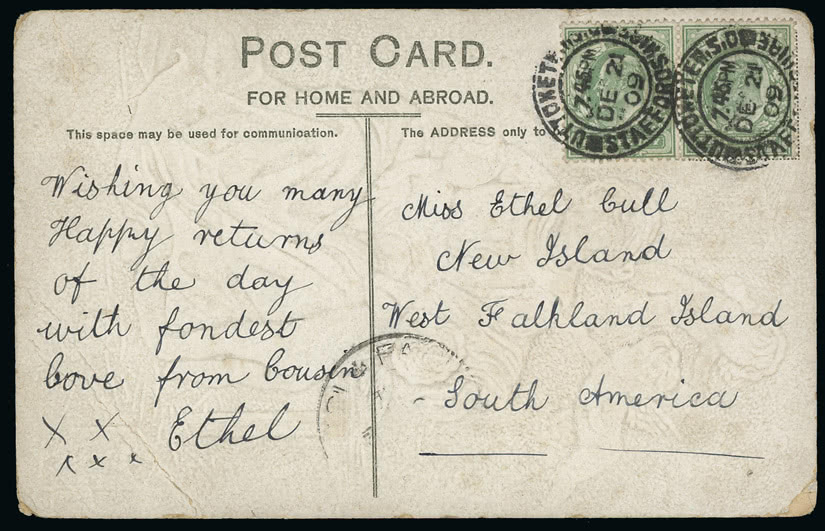 POST CARD.
FOR HOME AND ABROAD.
This space may be used for communication.
The ADDRESS only to
7.45PM
DE 21
09
STAFFORDS
7.45PM
DE 21
09
Wishing you many
Happy returns
of the day
with fondest
love from cousin
Ethel
x x
x x x
Miss Ethel Cull
New Island
West Falkland Island
South America